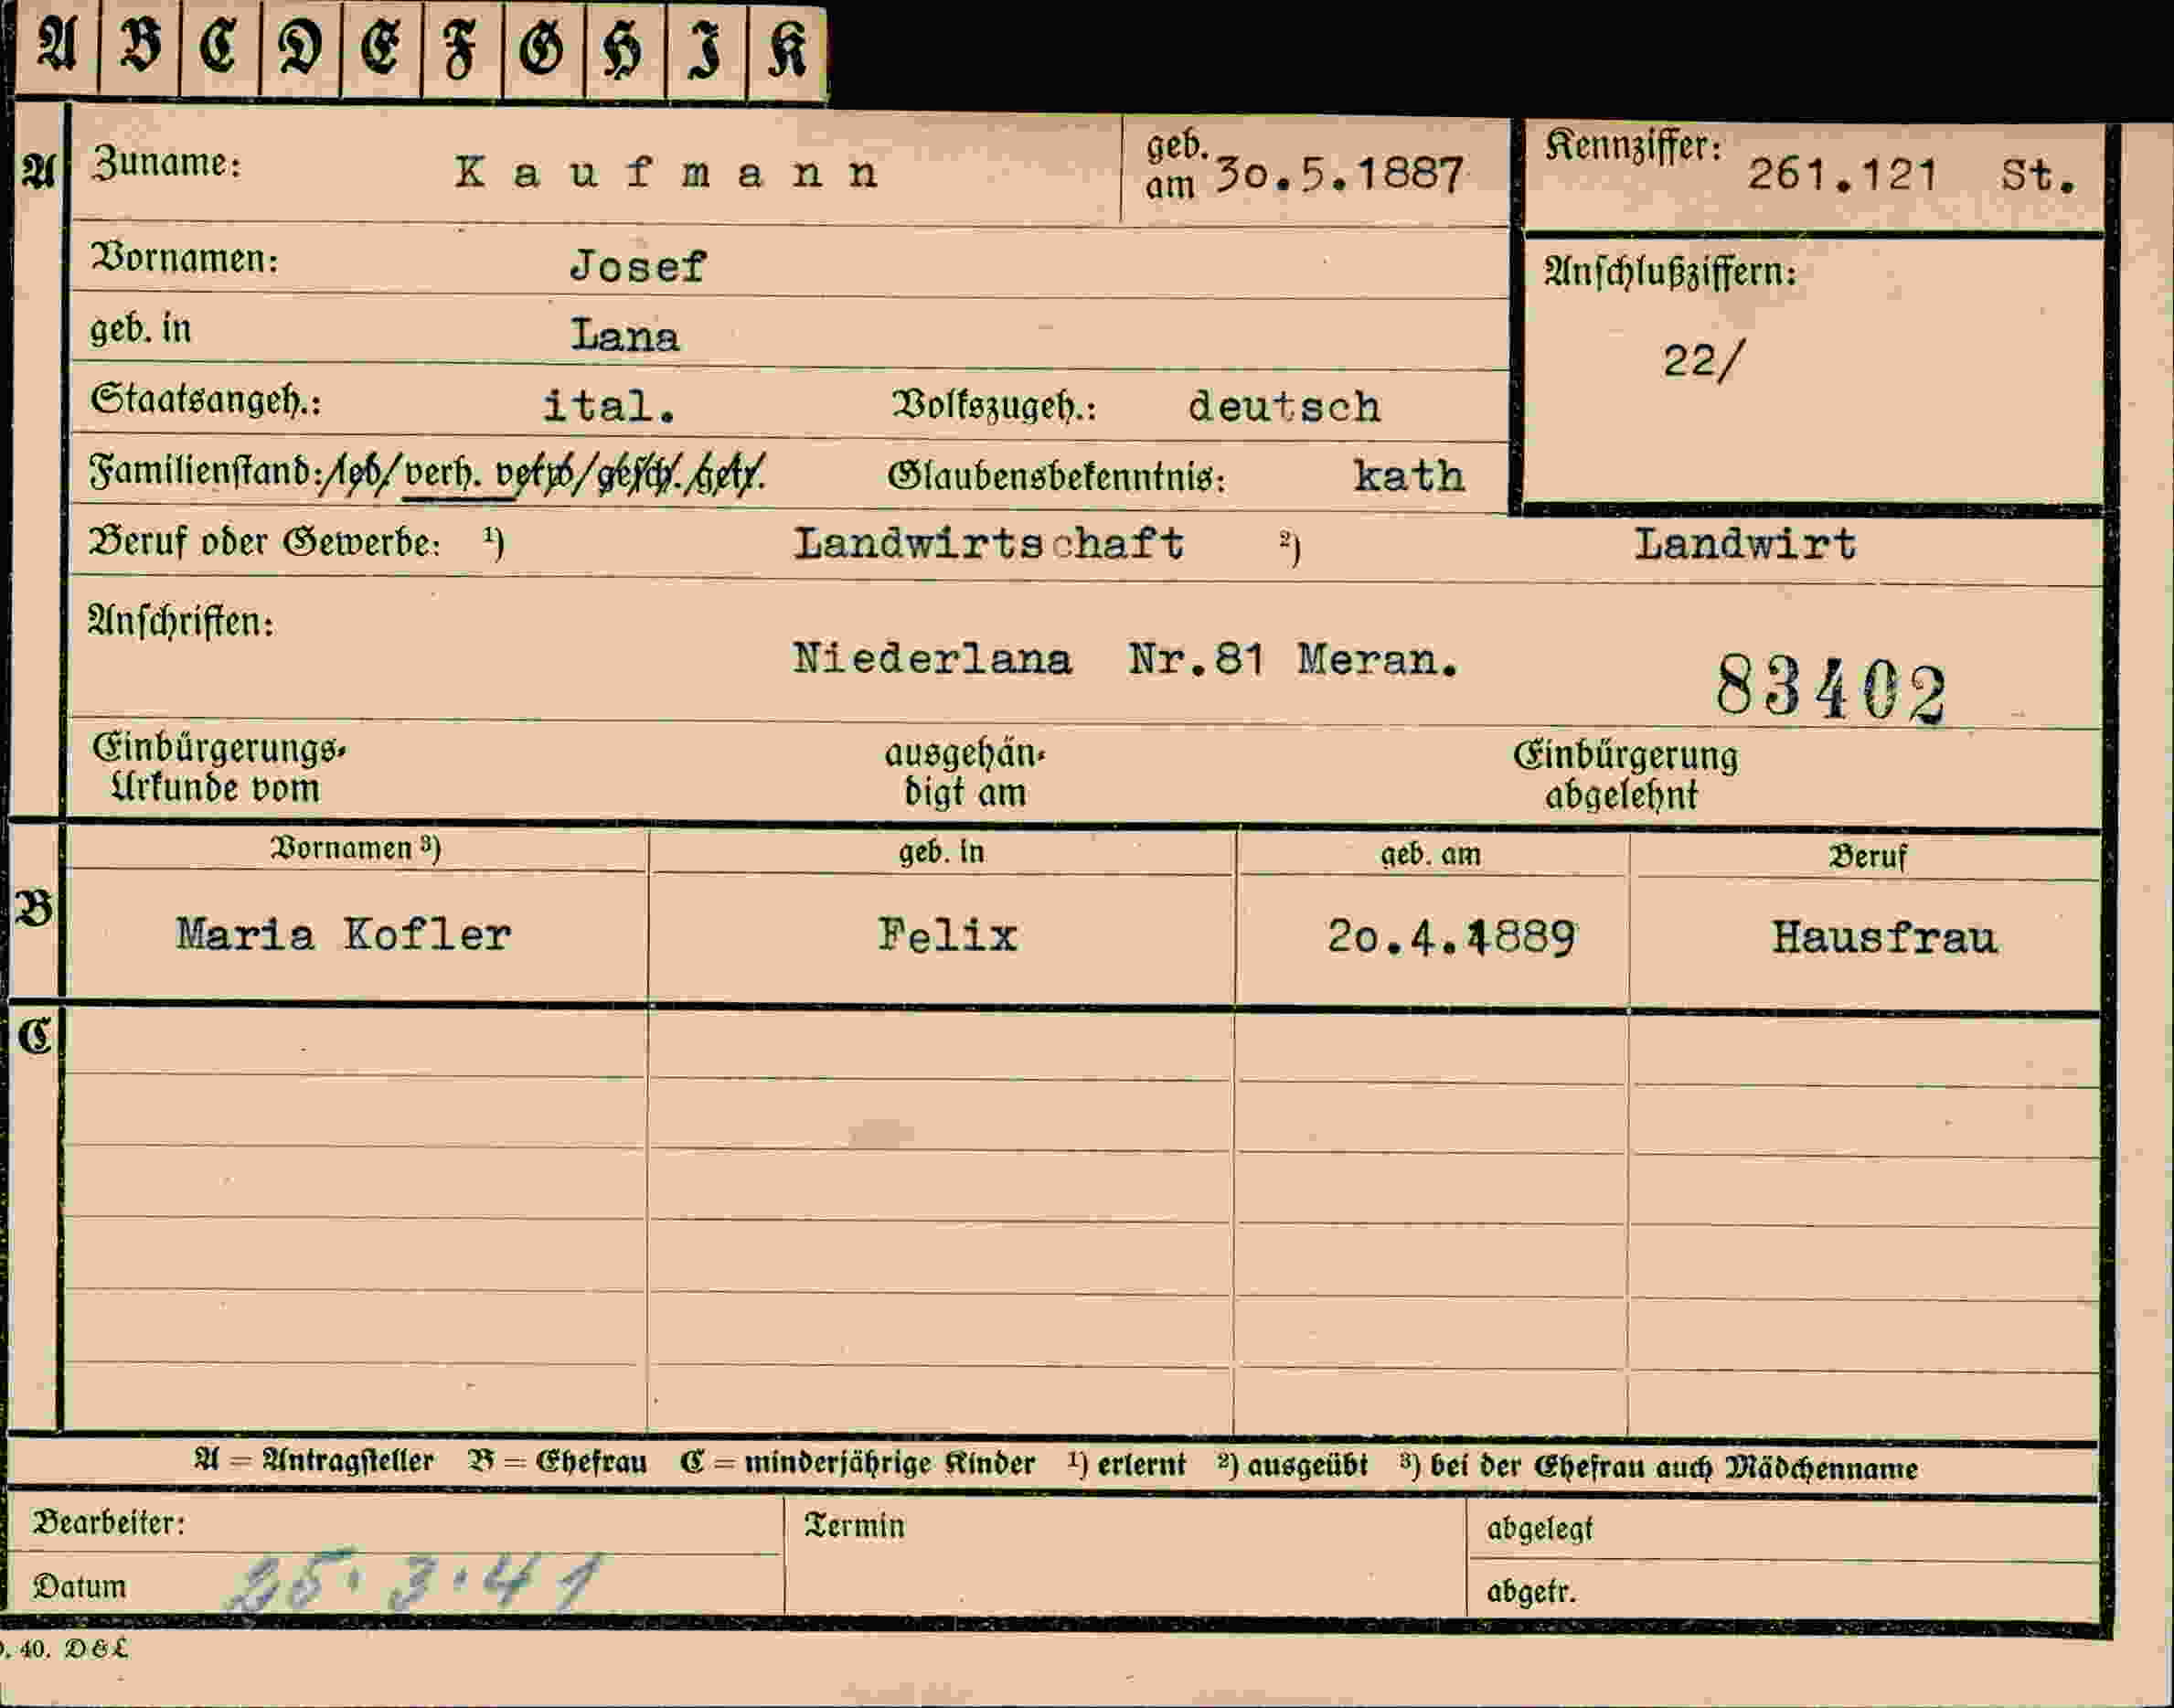 A B C D E F G H I K
A Zuname: Kaufmann geb. am 30.5.1887 Kennziffer: 261.121 St.
Vornamen: Josef Anschlußziffern:
geb. in Lana 22/
Staatsangeh.: ital. Volkszugeh.: deutsch
Familienstand: led/verh. verw/gesch./getr. Glaubensbekenntnis: kath
Beruf oder Gewerbe: ¹) Landwirtschaft ²) Landwirt
Anschriften:
Niederlana Nr.81 Meran. 83402
Einbürgerungs- ausgehän- Einbürgerung
Urkunde vom digt am abgelehnt
Vornamen ³) geb. in geb. am Beruf
B Maria Kofler Felix 20.4.1889 Hausfrau
C
A = Antragsteller B = Ehefrau C = minderjährige Kinder ¹) erlernt ²) ausgeübt ³) bei der Ehefrau auch Mädchenname
Bearbeiter: Termin abgelegt
Datum 25.3.41 abgetr.
40. DEL